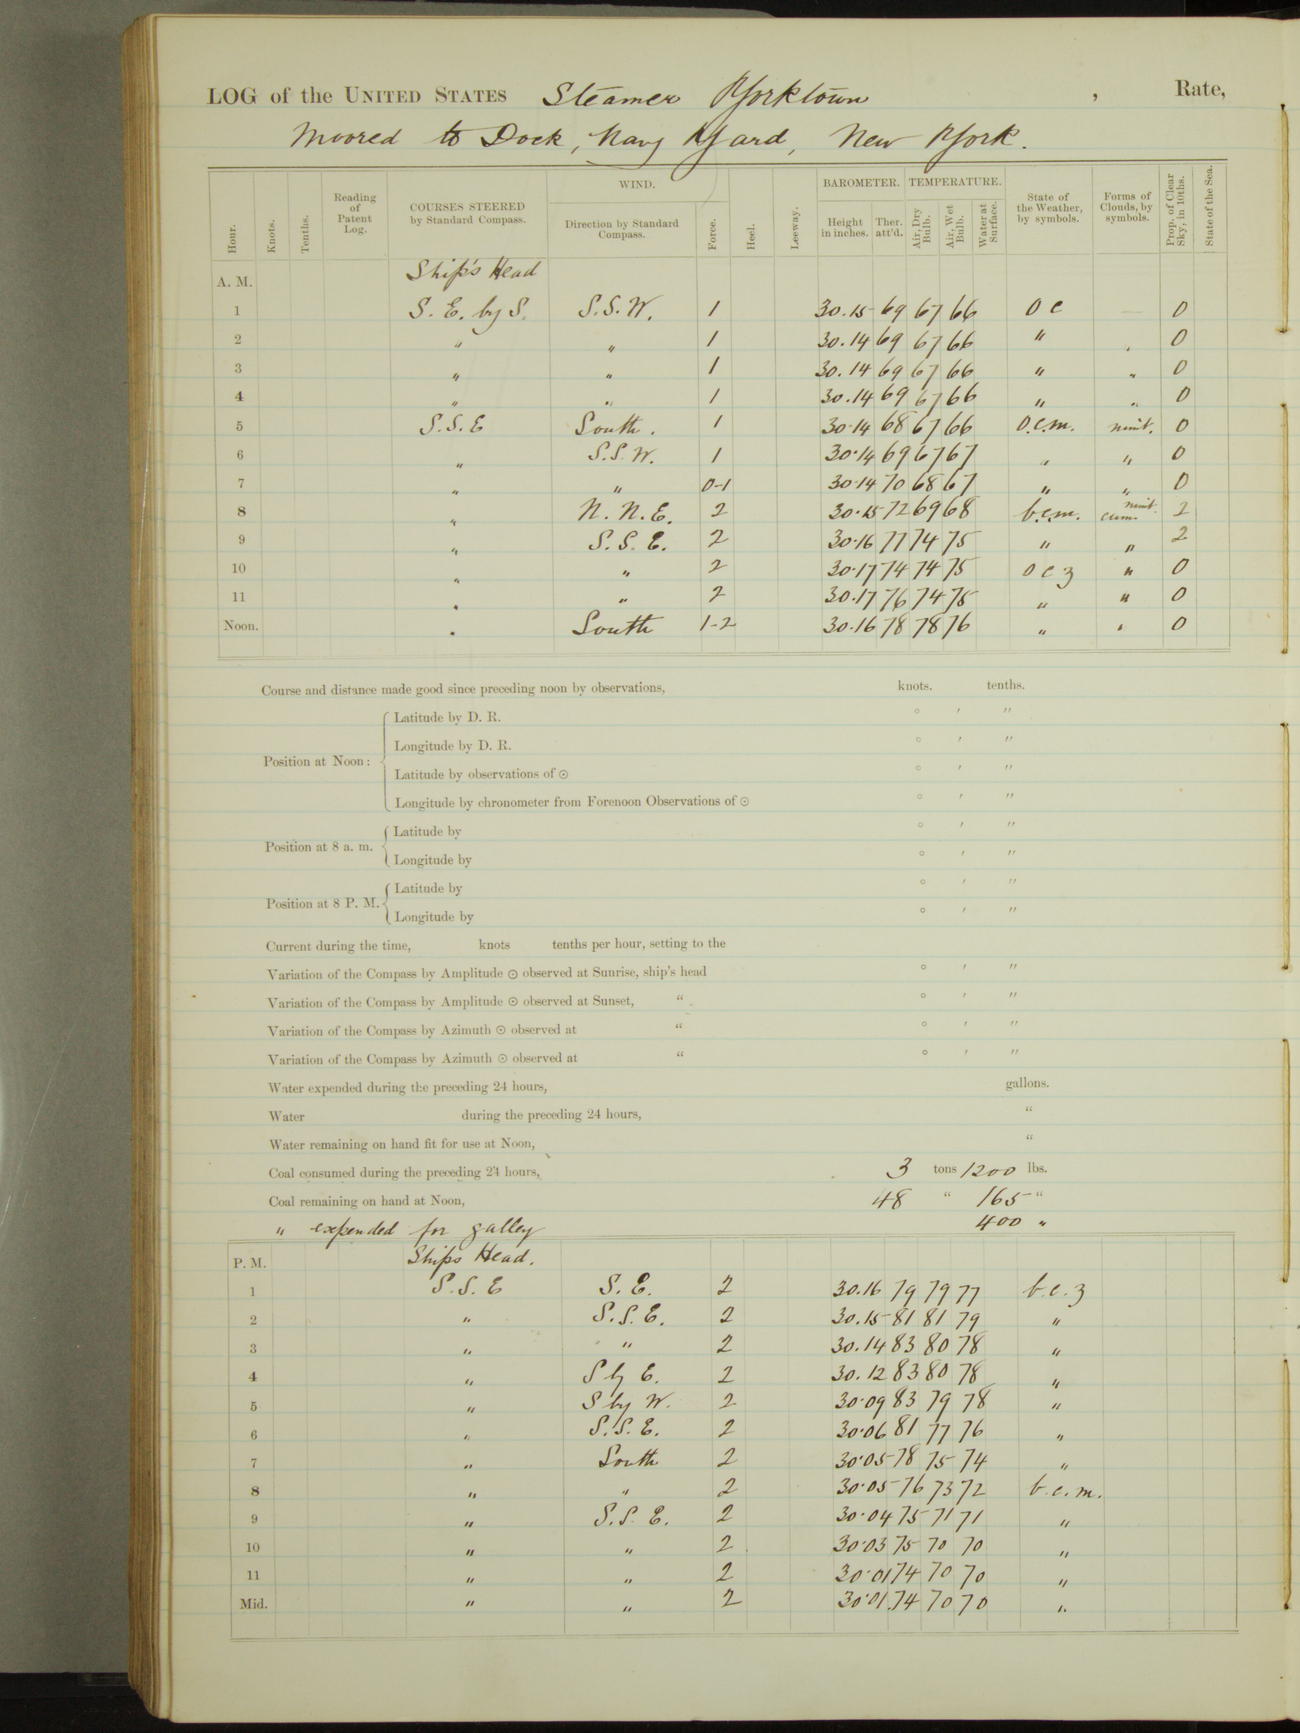 LOG of the UNITED STATES Steamer Yorktown , Rate,
Moored to Dock, Navy Yard, New York.
Hour. Knots. Tenths. Reading of Patent Log. COURSES STEERED by Standard Compass. WIND. Direction by Standard Compass. Force. Heel. Leeway. BAROMETER. Height in inches. Ther. att'd. TEMPERATURE. Air, Dry Bulb. Air, Wet Bulb. Water at Surface. State of the Weather, by symbols. Forms of Clouds, by symbols. Prop. of Clear Sky, in 10ths. State of the Sea.
A. M. Ship's Head
1 S. E. by S. S.S.W. 1 30.15 69 67 66 O c 0
2 " " 1 30.14 69 67 66 " " 0
3 " " 1 30.14 69 67 66 " " 0
4 " " 1 30.14 69 67 66 " " 0
5 S.S.E South. 1 30.14 68 67 66 O.c.m. nimb. 0
6 " S.S.W. 1 30.14 69 67 67 " " 0
7 " " 0-1 30.14 70 68 67 " " 0
8 " N.N.E. 2 30.15 72 69 68 b.c.m. cum. nimb. 2
9 " S.S.E. 2 30.16 77 74 75 " " 2
10 " " 2 30.17 74 74 75 O c z " 0
11 " " 2 30.17 76 74 75 " " 0
Noon. " South 1-2 30.16 78 78 76 " " 0
Course and distance made good since preceding noon by observations, knots. tenths.
Position at Noon:
Latitude by D. R. ° ′ ″
Longitude by D. R. ° ′ ″
Latitude by observations of ☉ ° ′ ″
Longitude by chronometer from Forenoon Observations of ☉ ° ′ ″
Position at 8 a. m.
Latitude by ° ′ ″
Longitude by ° ′ ″
Position at 8 P. M.
Latitude by ° ′ ″
Longitude by ° ′ ″
Current during the time, knots tenths per hour, setting to the
Variation of the Compass by Amplitude ☉ observed at Sunrise, ship's head ° ′ ″
Variation of the Compass by Amplitude ☉ observed at Sunset, " ° ′ ″
Variation of the Compass by Azimuth ☉ observed at " ° ′ ″
Variation of the Compass by Azimuth ☉ observed at " ° ′ ″
Water expended during the preceding 24 hours, gallons.
Water during the preceding 24 hours, "
Water remaining on hand fit for use at Noon, "
Coal consumed during the preceding 24 hours, 3 tons 1200 lbs.
Coal remaining on hand at Noon, 48 " 165 "
" expended for galley 400 "
P. M. Ships Head.
1 S.S.E S.E. 2 30.16 79 79 77 b.c.z
2 " S.S.E. 2 30.15 81 81 79 "
3 " " 2 30.14 83 80 78 "
4 " S by E. 2 30.12 83 80 78 "
5 " S by W. 2 30.09 83 79 78 "
6 " S.S.E. 2 30.06 81 77 76 "
7 " South 2 30.05 78 75 74 "
8 " " 2 30.05 76 73 72 b.c.m.
9 " S.S.E. 2 30.04 75 71 71 "
10 " " 2 30.03 75 70 70 "
11 " " 2 30.01 74 70 70 "
Mid. " " 2 30.01 74 70 70 "